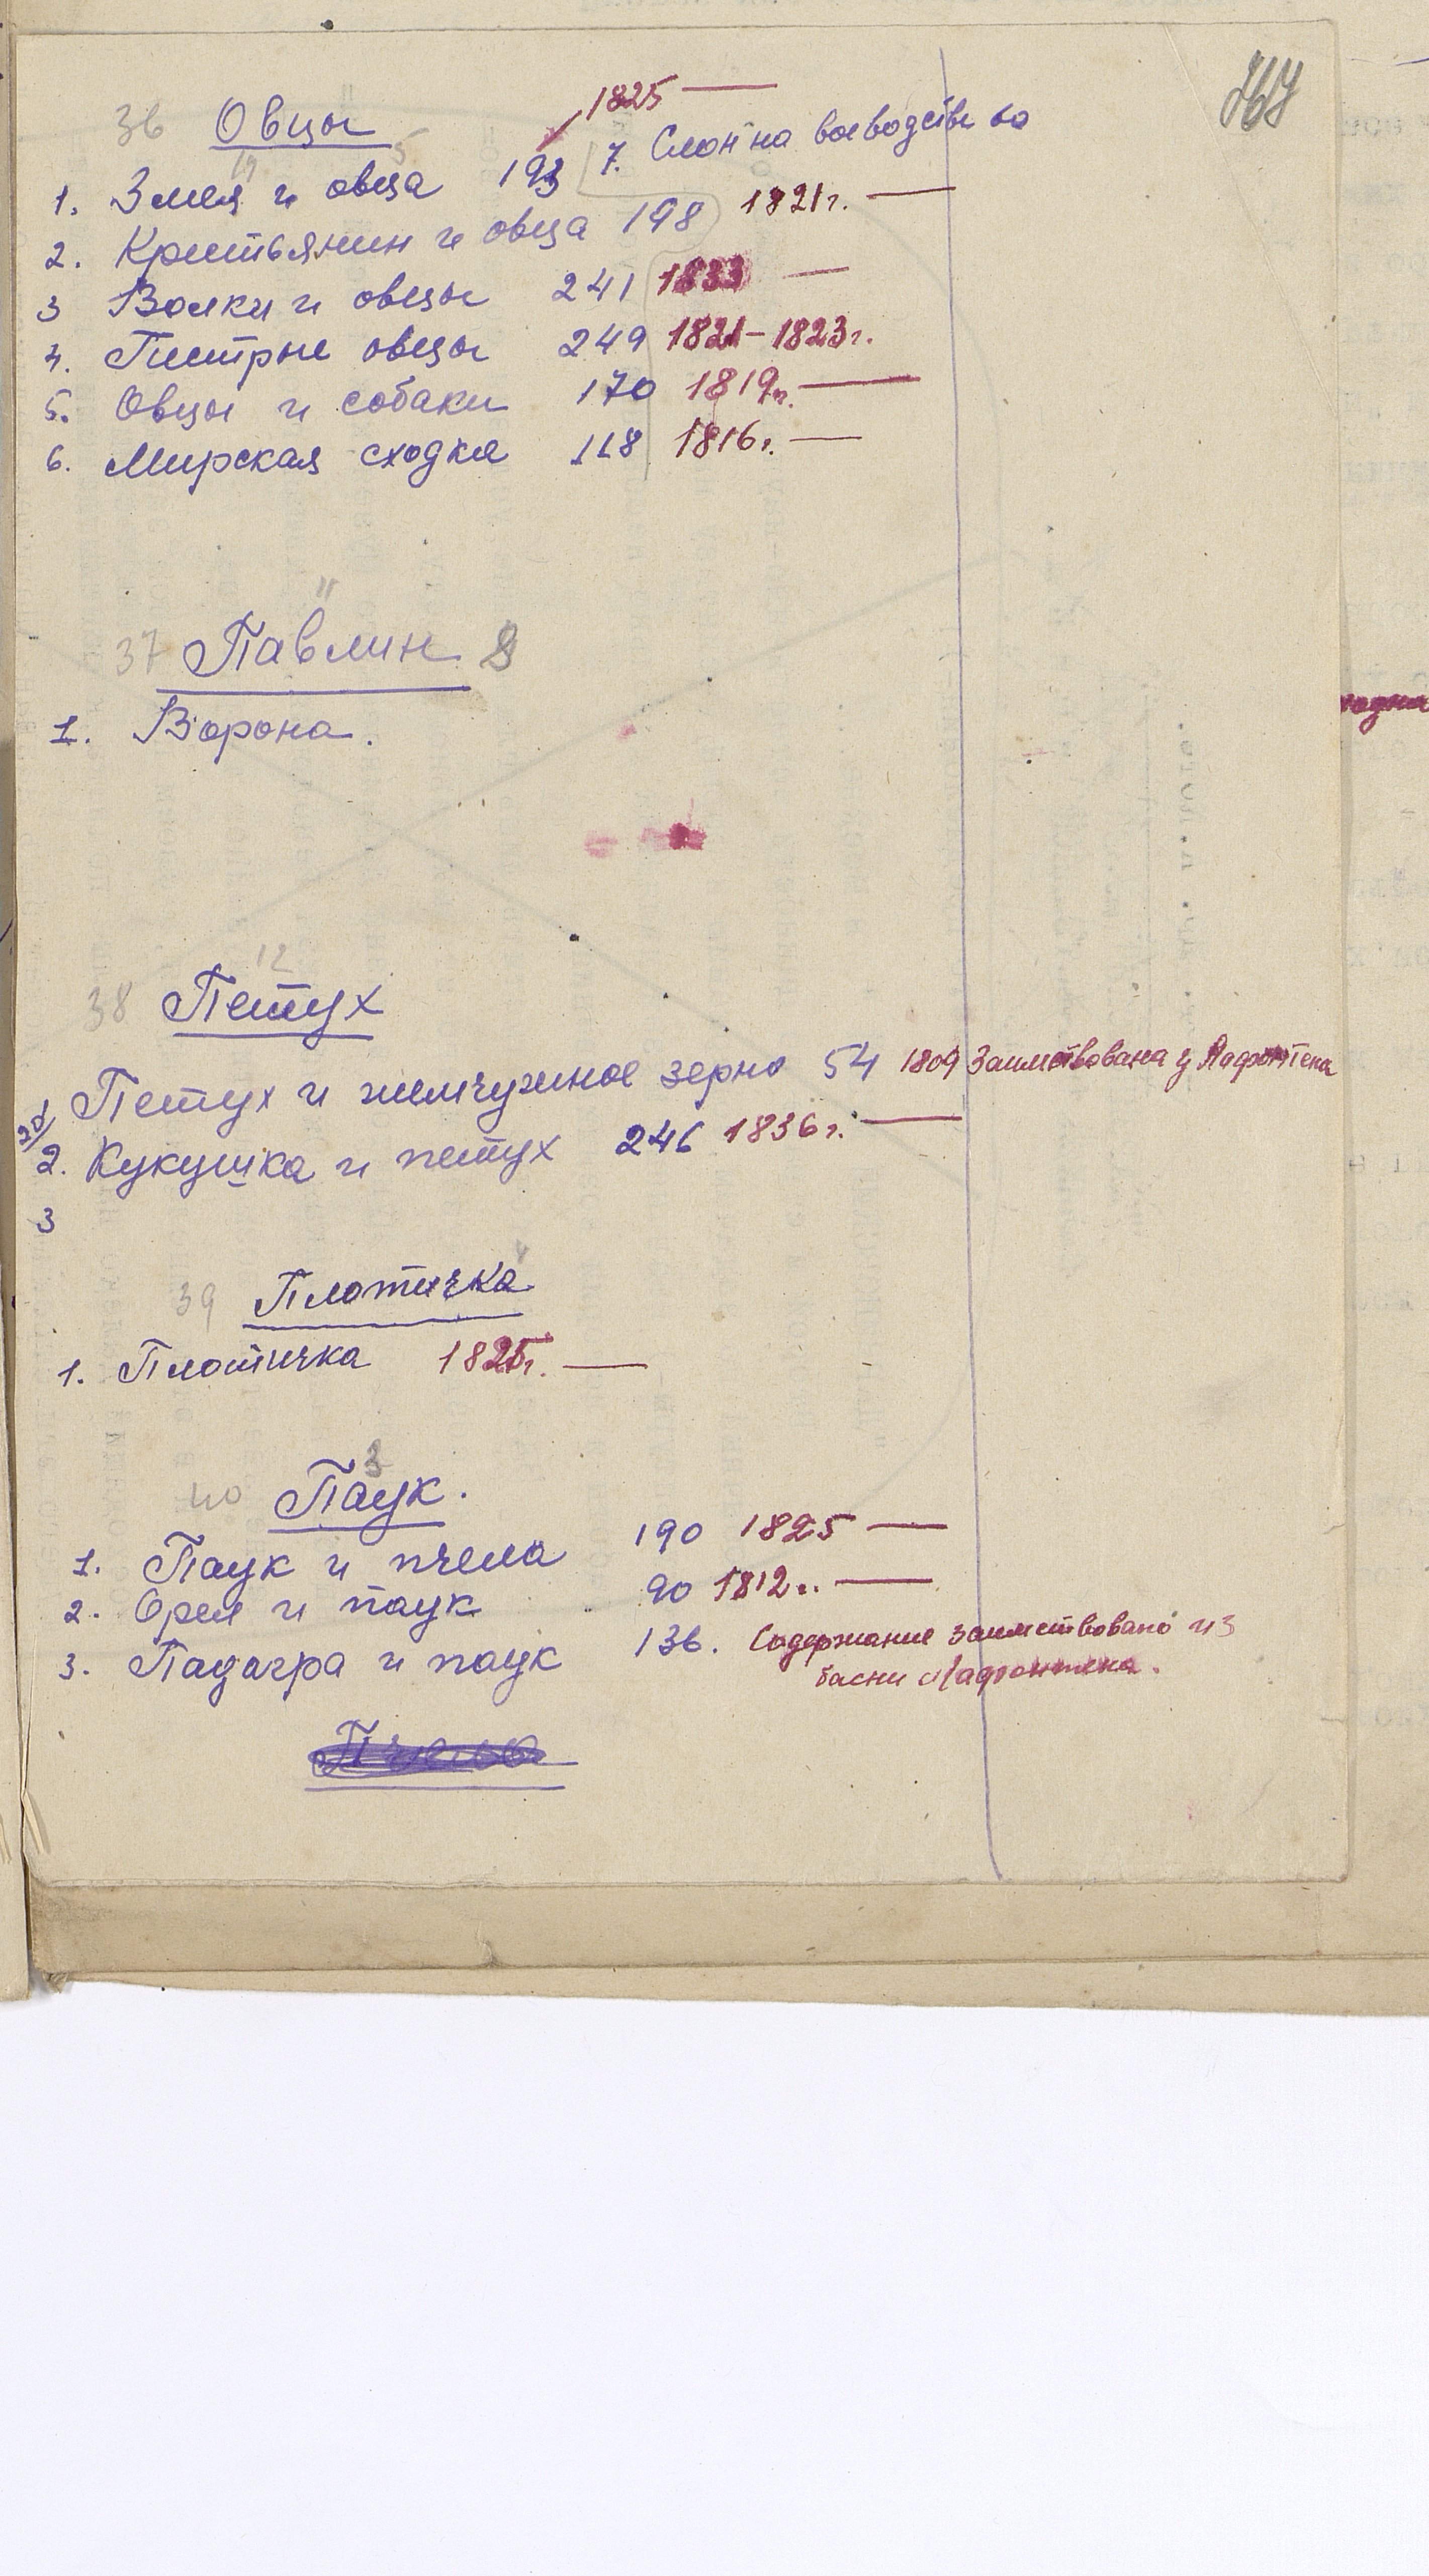 36 Овцы
1825 —
1. Змея и овца 193 7. Слон на воеводстве 60
2. Крестьянин и овца 198 1821г. —
3 Волки и овцы 241 1833 —
4. Пестрые овцы 249 1821-1823г.
5. Овцы и собаки 170 1819г. —
6. Мирская сходка 118 1816г. —
11
37 Павлин 8
1. Ворона.
12
38 Петух
Петух и жемчужное зерно 54 1809 Заимствована у Лафонтена
2. Кукушка и петух 246 1836г. —
3
39 Плотичка
1. Плотичка 1825г. —
3
40 Паук.
1. Паук и пчела 190 1825 —
2. Орел и паук 90 1812г. —
3. Падагра и паук 136. Содержание заимствовано из
басни Лафонтена.